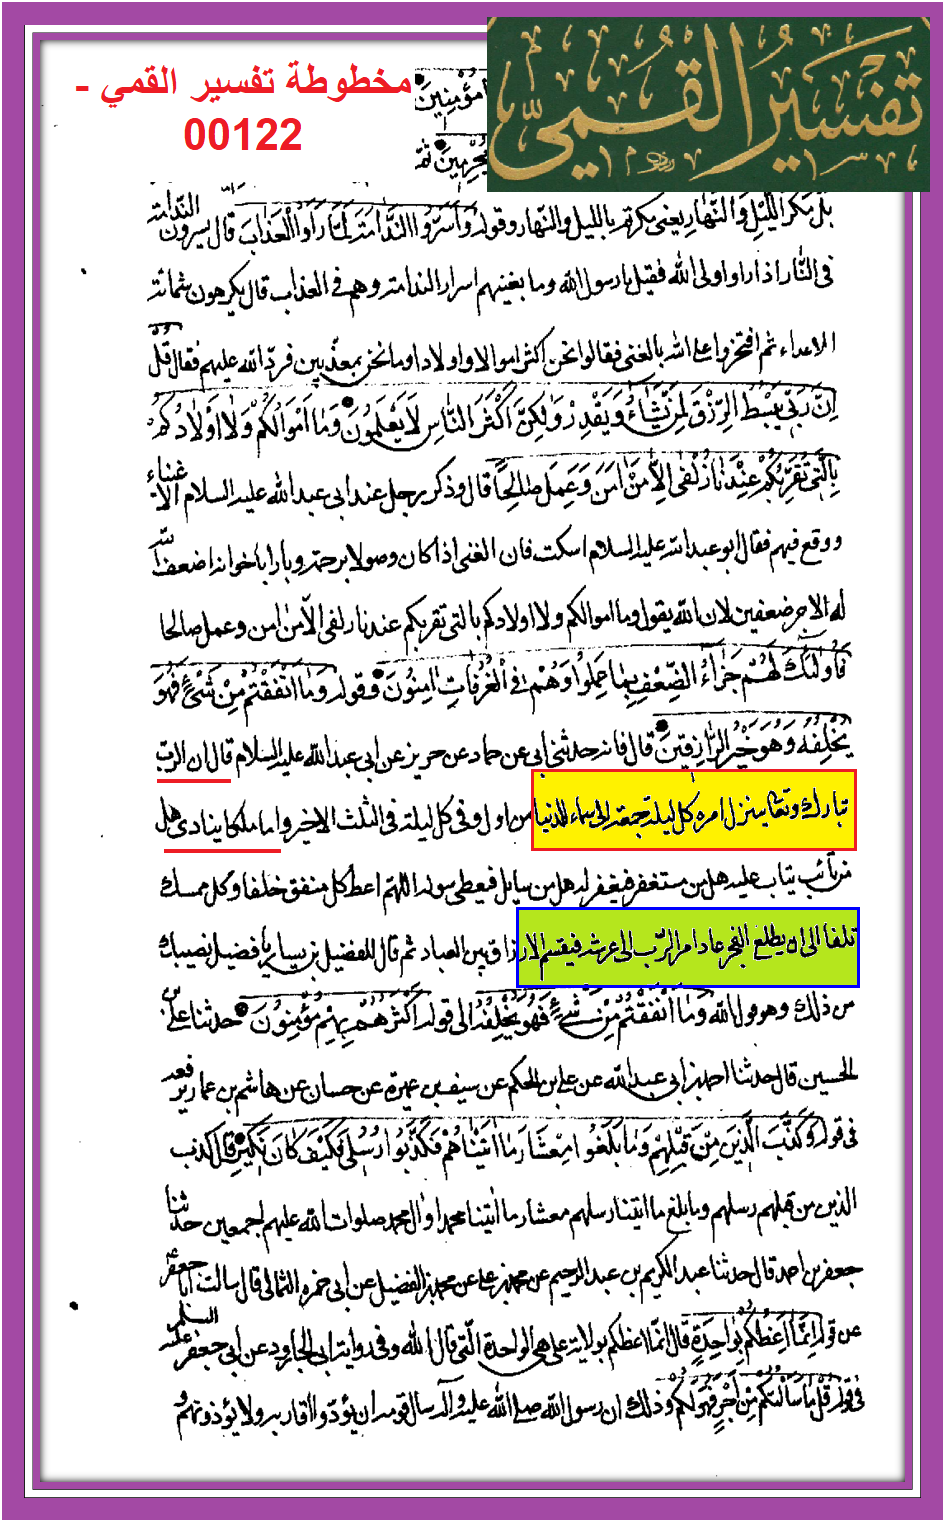 تفسير القمي
مخطوطة تفسير القمي -
00122
مؤمنين
مجرمين
بَلْ مَكْرُ اللَّيْلِ وَالنَّهَارِ يعنى مكرتم بالليل والنهار وقوله وَاَسَرُّوا النَّدَامَةَ لَمَّا رَاَوُا الْعَذَابَ قال يسرون الندامة
فى النار اذا راوا ولى الله فقيل يا رسول الله وما يغنيهم اسرار الندامة وهم فى العذاب قال يكرهون شماتة
الاعداء ثم افتخروا على الله بالغنى فقالوا نحن اكثر اموالا واولادا وما نحن بمعذبين فرد الله عليهم فقال قل
اِنَّ رَبِّى يَبْسُطُ الرِّزْقَ لِمَنْ يَشَاءُ وَيَقْدِرُ وَلكِنَّ اَكْثَرَ النَّاسِ لَا يَعْلَمُونَ وَمَا اَمْوَالُكُمْ وَلَا اَوْلَادُكُمْ
بِالَّتِى تُقَرِّبُكُمْ عِنْدَنَا زُلْفى اِلَّا مَنْ امَنَ وَعَمِلَ صَالِحًا قال وذكر رجل عند ابى عبد الله عليه السلام الاغنياء
ووقع فيهم فقال ابو عبد الله عليه السلام اسكت فان الغنى اذا كان وصولا برحمه وبارا باخوانه اضعف الله
له الاجر ضعفين لان الله يقول وما اموالكم ولا اولادكم بالتى تقربكم عندنا زلفى الا من امن وعمل صالحا
فَاُولئِكَ لَهُمْ جَزَاءُ الضِّعْفِ بِمَا عَمِلُوا وَهُمْ فِى الْغُرُفَاتِ امِنُونَ وقوله وَمَا اَنْفَقْتُمْ مِنْ شَىْءٍ فَهُوَ
يُخْلِفُهُ وَهُوَ خَيْرُ الرَّازِقِينَ قال فانه حدثنى ابى عن حماد عن حريز عن ابى عبد الله عليه السلام قال ان الرب
تبارك وتعالى ينزل امره كل ليلة جمعة الى سماء الدنيا من اول وفى كل ليلة فى الثلث الاخير واما ملكا ينادى هل
من تائب يتاب عليه هل من مستغفر فيغفر له هل من سايل فيعطى سوله اللهم اعط كل منفق خلفا وكل ممسك
تلفا الى ان يطلع الفجر عاد امر الرب الى عرشه فيقسم الارزاق بين العباد ثم قال للفضيل بن يسار يا فضيل نصيبك
من ذلك وهو قول الله وَمَا اَنْفَقْتُمْ مِنْ شَىْءٍ فَهُوَ يُخْلِفُهُ الى قوله اَكْثَرُهُمْ بِهِمْ مُؤْمِنُونَ حدثنا على بن
الحسين قال حدثنا احمد بن ابى عبد الله عن على بن الحكم عن سيف بن عميرة عن حسان عن هاشم بن عمار يرفعه
فى قوله وَكَذَّبَ الَّذِينَ مِنْ قَبْلِهِمْ وَمَا بَلَغُوا مِعْشَارَ مَا اتَيْنَاهُمْ فَكَذَّبُوا رُسُلِى فَكَيْفَ كَانَ نَكِيرِ قال كذب
الذين من قبلهم رسلهم وما بلغ ما اتينا رسلهم معشار ما اتينا محمدا وال محمد صلوات الله عليهم اجمعين حدثنا
جعفر بن احمد قال حدثنا عبد الكريم بن عبد الرحيم عن محمد بن على عن محمد بن الفضيل عن ابى حمزه الثمالى قال سالت ابا جعفر ع
عن قوله اِنَّمَا اَعِظُكُمْ بِوَاحِدَةٍ قال انما اعظكم بولاية على هى الواحدة التى قال الله وفى رواية ابى الجارود عن ابى جعفر عليه السلم
فى قوله قُلْ مَا سَاَلْتُكُمْ مِنْ اَجْرٍ فَهُوَ لَكُمْ وذلك ان رسول الله صلى الله عليه وآله سال قومه ان يودوا اقاربه ولا يؤذونهم و